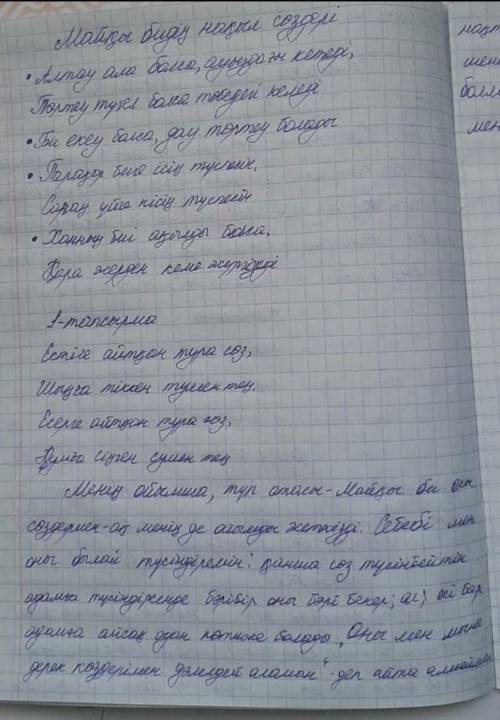 Майқы бидің нақыл сөздері
• Алтау ала болса, ауыздағы кетеді,
Төртеу түгел болса төбедегі келеді
• Би екеу болса, дау төртеу болады
• Парақор биге ісің түспесін,
Сараң үйге түсің түспесін
• Ханның биі ақылды болса,
Қара жерден кеме жүргізеді
1-тапсырма
Естіге айтқан тура сөз,
Шыңға тіккен тумен тең.
Есерге айтқан тура сөз,
Құмға сіңген сумен тең
Менің ойымша, түр атасы - Майқы би осы
сөздермен-ақ менің де ойымды жеткізді. Себебі мен
оны былай түсіндіремін: қанша сөз түсінбейтін
адамға түсіндірсеңде бәрібір оны бәрі бекер; ал, есі бар
адамға айсаң одан нәтиже болады. „Оны мен мына
дерек көздерімен дәлелдей аламын“ - деп айта алмаймын
нақт
шең
болм
мен